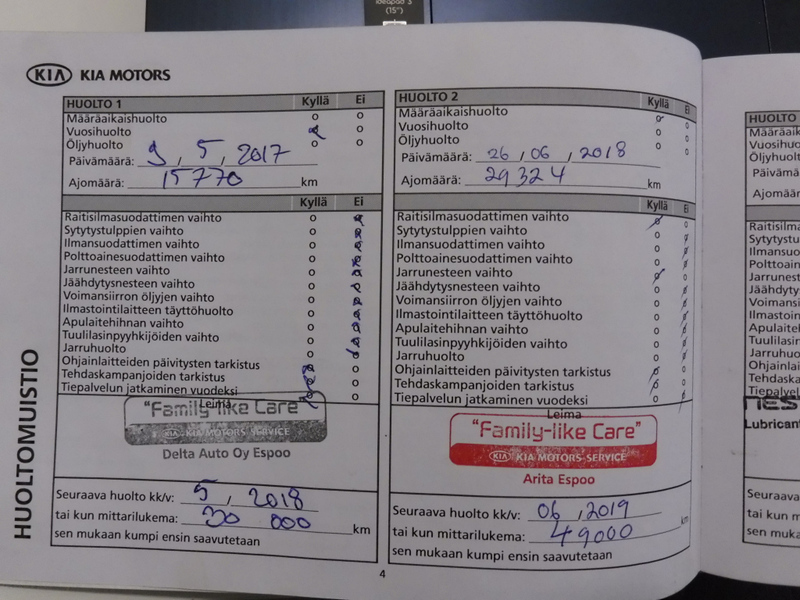 ideapad 3
(15")
KIA KIA MOTORS
HUOLTO 1 Kyllä Ei
Määräaikaishuolto o o
Vuosihuolto o
Öljyhuolto o o
Päivämäärä: 9, 5, 2017
Ajomäärä: 15770 km
Kyllä Ei
Raitisilmasuodattimen vaihto o
Sytytystulppien vaihto o
Ilmansuodattimen vaihto o
Polttoainesuodattimen vaihto o
Jarrunesteen vaihto o
Jäähdytysnesteen vaihto o
Voimansiirron öljyjen vaihto o
Ilmastointilaitteen täyttöhuolto o
Apulaitehihnan vaihto o
Tuulilasinpyyhkijöiden vaihto o
Jarruhuolto o
Ohjainlaitteiden päivitysten tarkistus o
Tehdaskampanjoiden tarkistus o
Tiepalvelun jatkaminen vuodeksi o
Leima
"Family-like Care"
KIA KIA MOTORS SERVICE
Delta Auto Oy Espoo
Seuraava huolto kk/v: 5, 2018
tai kun mittarilukema: 30 000 km
sen mukaan kumpi ensin saavutetaan
HUOLTO 2 Kyllä Ei
Määräaikaishuolto o
Vuosihuolto o o
Öljyhuolto o o
Päivämäärä: 26, 06, 2018
Ajomäärä: 29324 km
Kyllä Ei
Raitisilmasuodattimen vaihto o
Sytytystulppien vaihto o
Ilmansuodattimen vaihto o
Polttoainesuodattimen vaihto o
Jarrunesteen vaihto o
Jäähdytysnesteen vaihto o
Voimansiirron öljyjen vaihto o
Ilmastointilaitteen täyttöhuolto o
Apulaitehihnan vaihto o
Tuulilasinpyyhkijöiden vaihto o
Jarruhuolto o
Ohjainlaitteiden päivitysten tarkistus o
Tehdaskampanjoiden tarkistus o
Tiepalvelun jatkaminen vuodeksi o
Leima
"Family-like Care"
KIA KIA MOTORS SERVICE
Arita Espoo
Seuraava huolto kk/v: 06, 2019
tai kun mittarilukema: 49000 km
sen mukaan kumpi ensin saavutetaan
HUOLTOMUISTIO
4
HUOLTO
Määräaika
Vuosihuol
Öljyhuolto
Päivämäär
Ajomäärä:
Raitisilma
Sytytystu
Ilmansuo
Polttoain
Jarrunest
Jäähdyty
Voimansi
Ilmastoin
Apulaiteh
Tuulilasin
Jarruhuol
Ohjainlait
Tehdaska
Tiepalvelu
Lubricant
Seuraava
tai kun m
sen muka